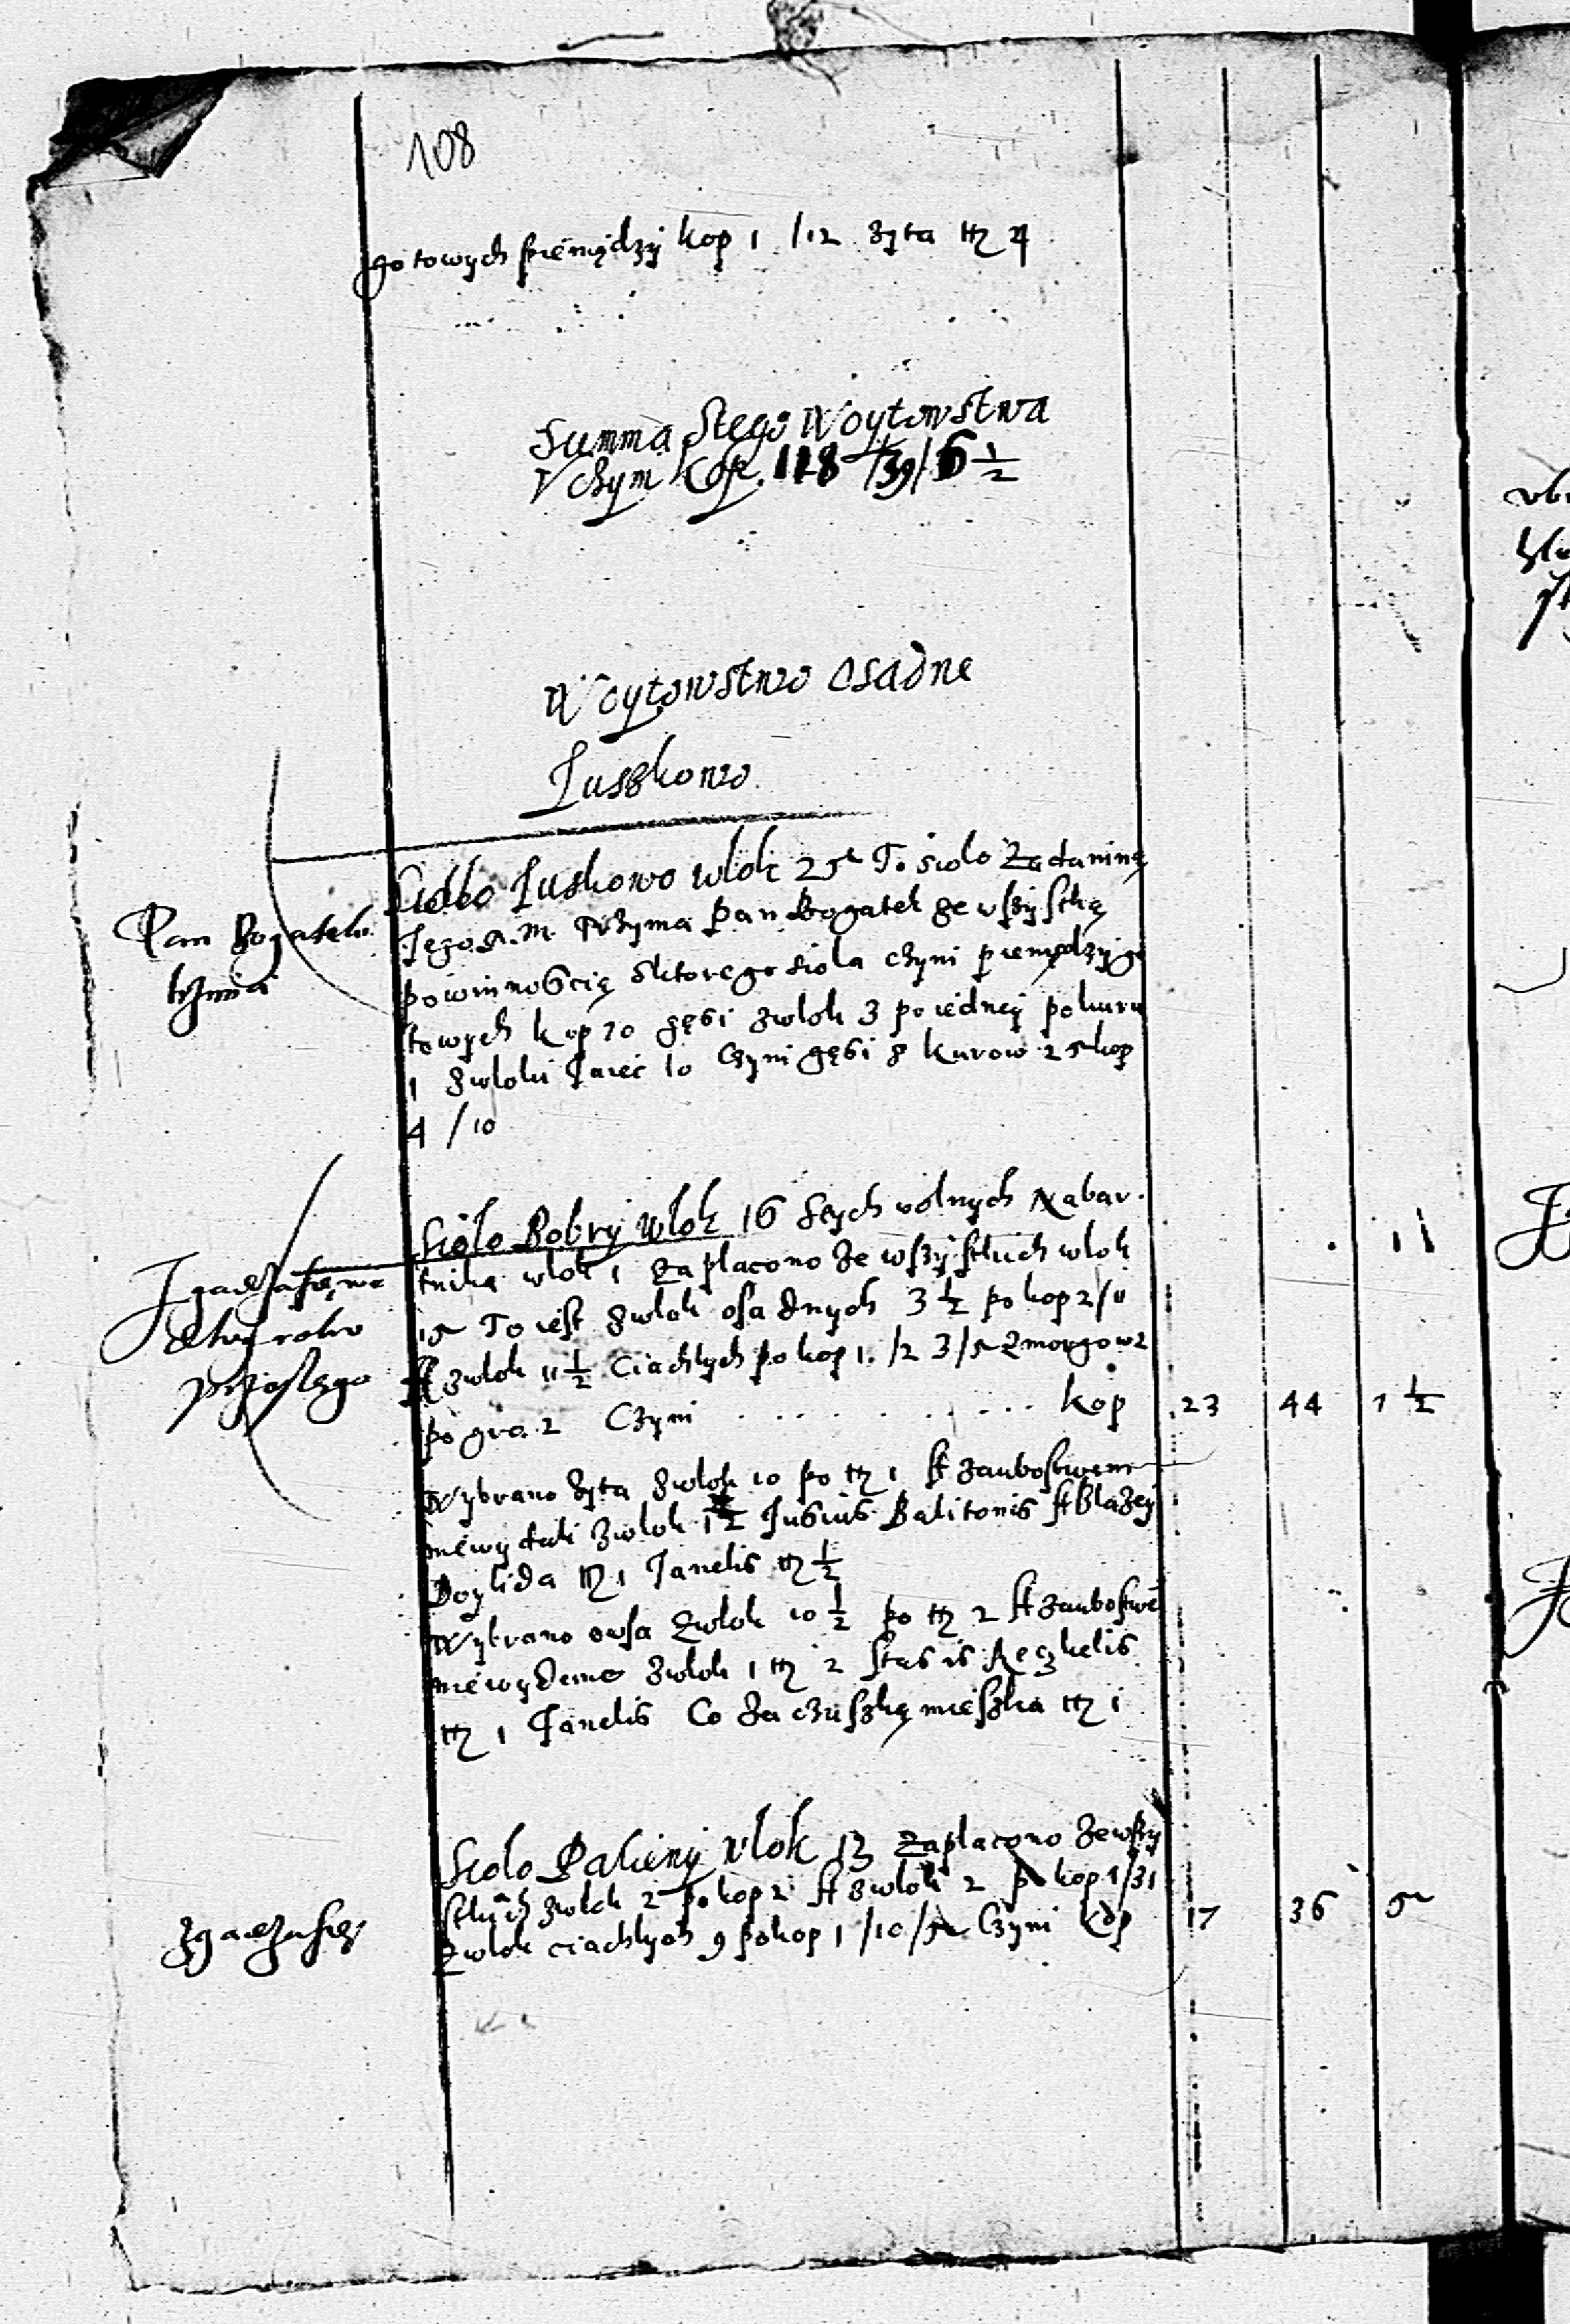 108
gotowych pieniędzy kop 1 /12 żyta tꝫ 4
Summa Stego Woytowstwa
Vczym kop. 118 /39/ 6 1/2
Woytowstwo Osadne
Juszkowo
Siolo Juskowo wlok 25 To siolo Zadaniną
Jego K. M. Trzyma Pan Bogatek ze wszystką
Pan Bogatek
powinnością Sktorego siola czyni pieniędzy go
trzyma
towych kop 70 gęsi zwlok 3 po iedney po kuru
1 zwloki Jaiec 10 Czyni gęsi 8 kurow 25 kop
4 /10
Siolo Bobry wlok 16 Stych wolnych Na bar
tniką wlok 1 zaplacono ze wszystkich wlok
Zgadza się na
15 To iest zwlok osadnych 3 1/2 po kop 2/11
przeszlego
A zwlok 11 1/2 Ciaehlych po kop 1. /2 3/5 Zmorgow 2
po gro. 2 Czyni . . . . . . . . . . kop 23 44 1 1/2
Wybrano żyta zwlok 10 po tꝫ 1 A zaubostwem
niewydali zwlok 1 1/2 Jusius Balitonis A Blazey
Doylida tꝫ 1 Janelis tꝫ 1/2
Wybrano owsa Zwlok 10 1/2 po tꝫ 2 A zaubostwē
niewydano zwlok 1 tꝫ 2 Stasis Reczkelis
tꝫ 1 Janelis Co za czuszką mieszka tꝫ 1
Siolo Pakieny Wlok 13 zaplacono zewszy
stkich zwlok 2 po kop 2 A zwlok 2 po kop 1/31
Zwlok ciachlych 9 po kop 1 /10 /5 Czyni kop 17 36 5
Zgadza się